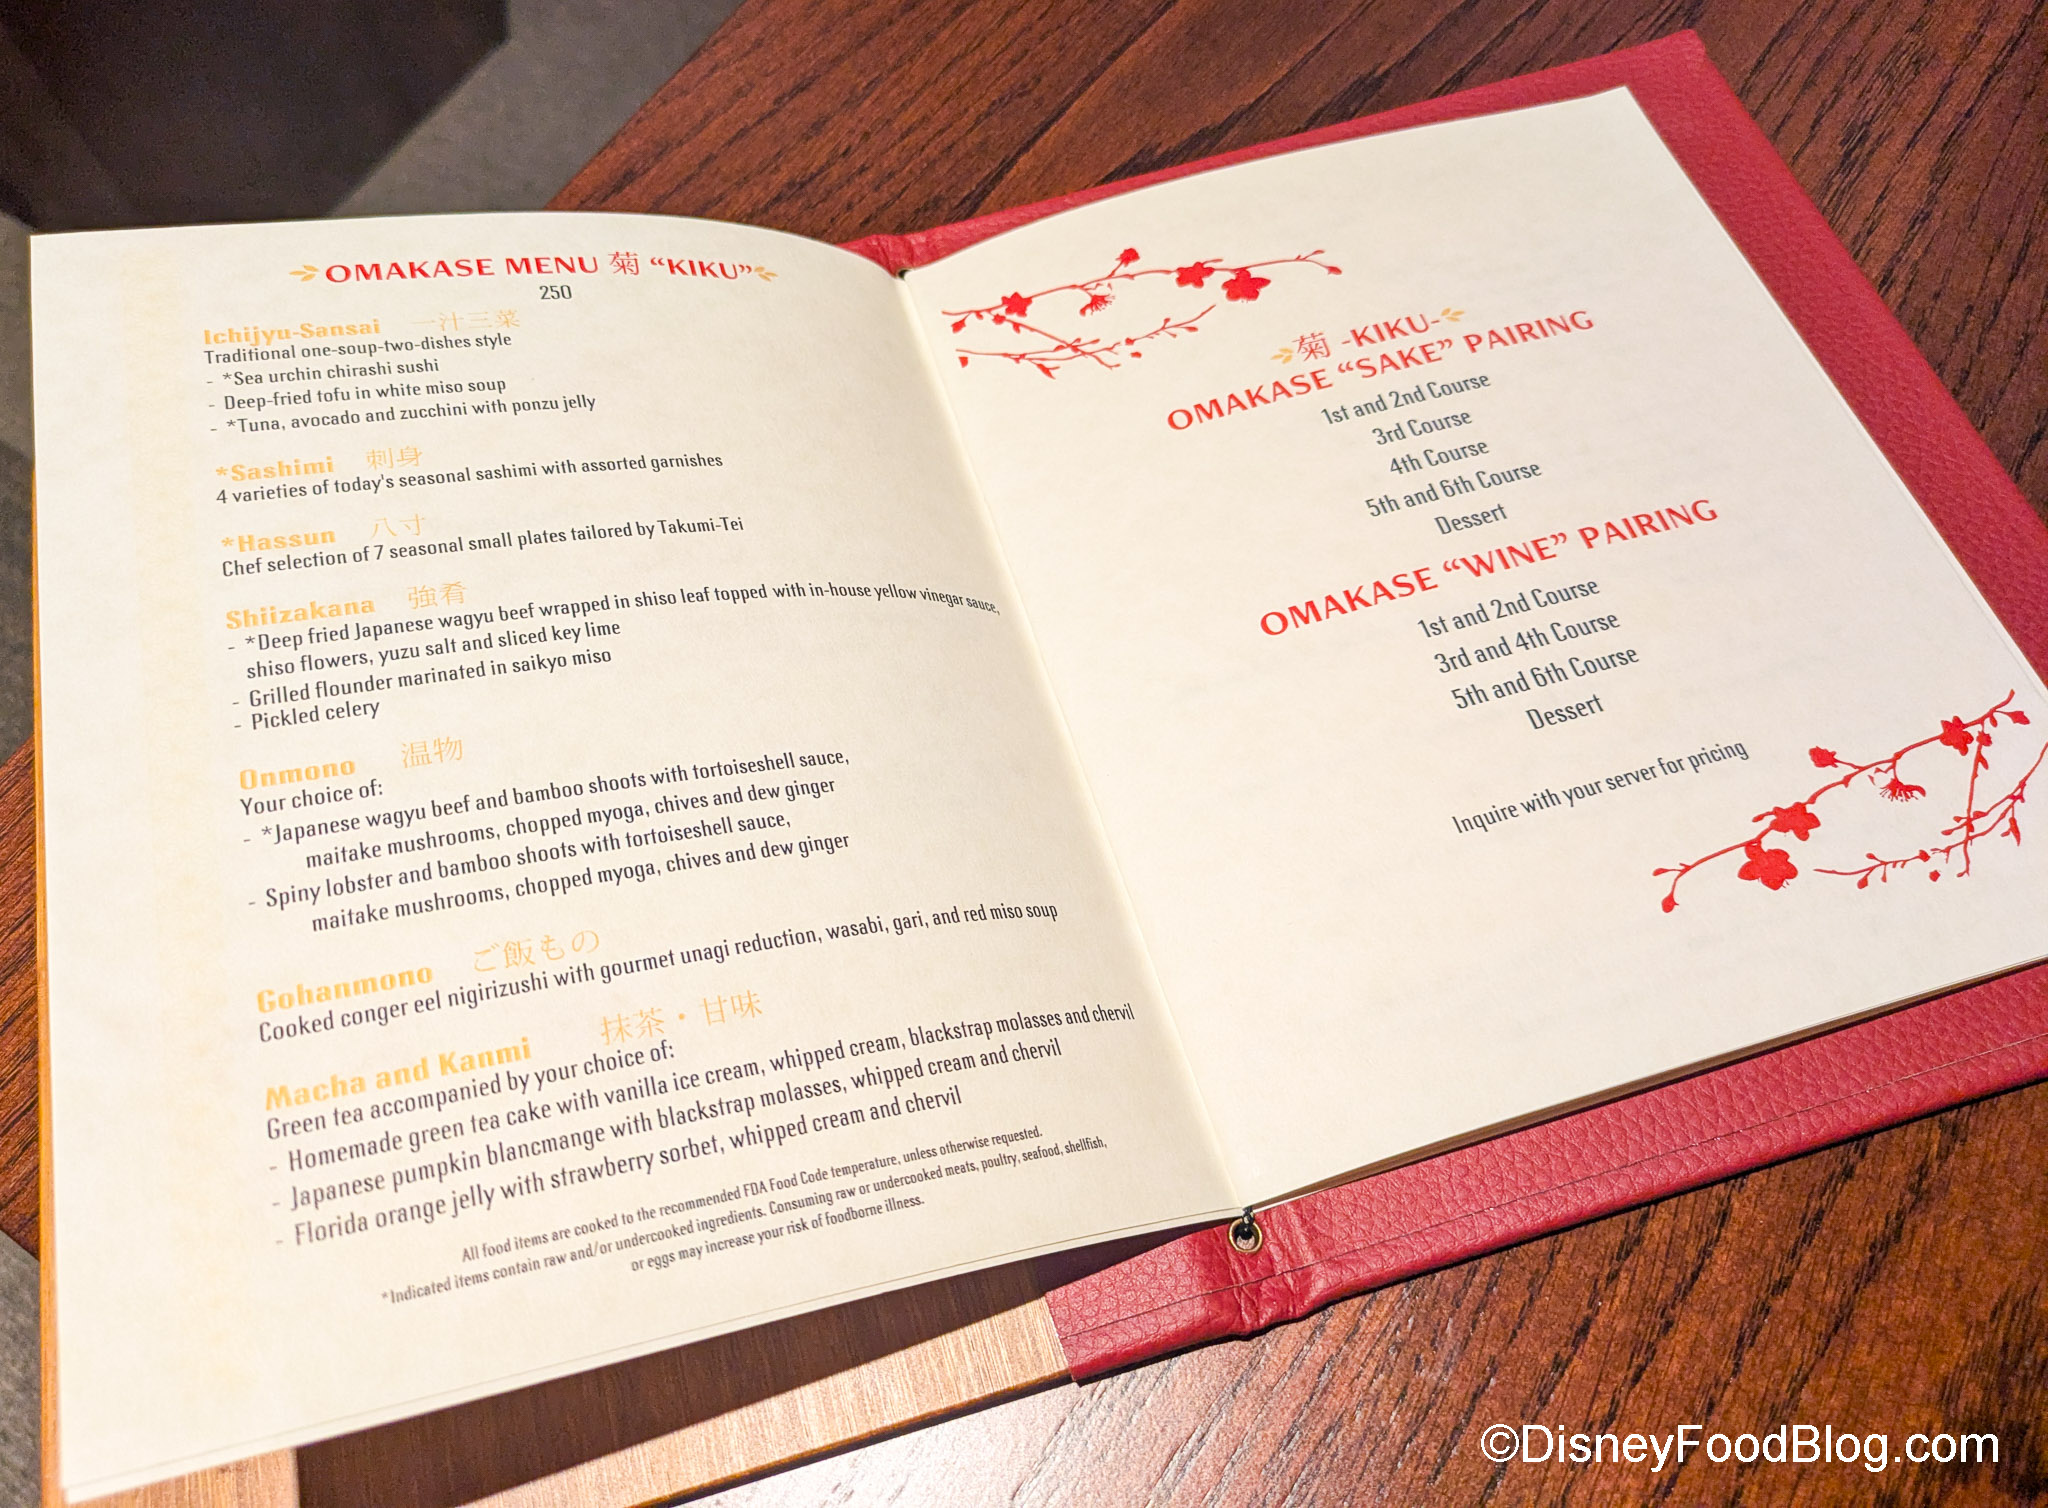 OMAKASE MENU 菊 “KIKU”
250
Ichijyu-Sansai 一汁三菜
Traditional one-soup-two-dishes style
- *Sea urchin chirashi sushi
- Deep-fried tofu in white miso soup
- *Tuna, avocado and zucchini with ponzu jelly
*Sashimi 刺身
4 varieties of today's seasonal sashimi with assorted garnishes
*Hassun 八寸
Chef selection of 7 seasonal small plates tailored by Takumi-Tei
Shiizakana 強肴
- *Deep fried Japanese wagyu beef wrapped in shiso leaf topped with in-house yellow vinegar sauce,
shiso flowers, yuzu salt and sliced key lime
- Grilled flounder marinated in saikyo miso
- Pickled celery
Onmono 温物
Your choice of:
- *Japanese wagyu beef and bamboo shoots with tortoiseshell sauce,
maitake mushrooms, chopped myoga, chives and dew ginger
- Spiny lobster and bamboo shoots with tortoiseshell sauce,
maitake mushrooms, chopped myoga, chives and dew ginger
Gohanmono ご飯もの
Cooked conger eel nigirizushi with gourmet unagi reduction, wasabi, gari, and red miso soup
Macha and Kanmi 抹茶・甘味
Green tea accompanied by your choice of:
- Homemade green tea cake with vanilla ice cream, whipped cream, blackstrap molasses and chervil
- Japanese pumpkin blancmange with blackstrap molasses, whipped cream and chervil
- Florida orange jelly with strawberry sorbet, whipped cream and chervil
All food items are cooked to the recommended FDA Food Code temperature, unless otherwise requested.
*Indicated items contain raw and/or undercooked ingredients. Consuming raw or undercooked meats, poultry, seafood, shellfish,
or eggs may increase your risk of foodborne illness.
菊 -KIKU-
OMAKASE “SAKE” PAIRING
1st and 2nd Course
3rd Course
4th Course
5th and 6th Course
Dessert
OMAKASE “WINE” PAIRING
1st and 2nd Course
3rd and 4th Course
5th and 6th Course
Dessert
Inquire with your server for pricing
©DisneyFoodBlog.com